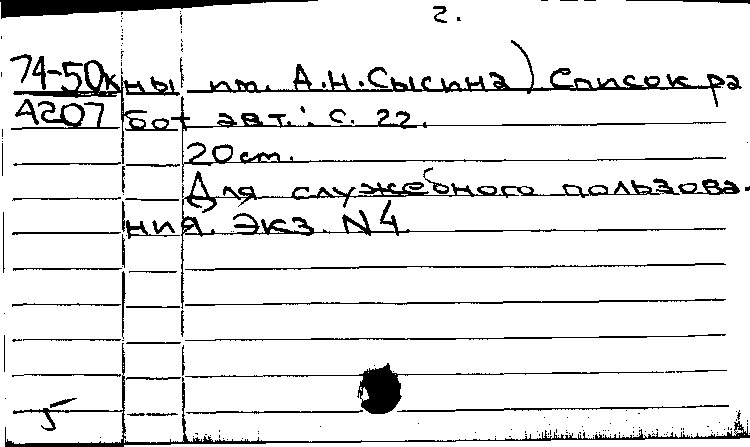 2.
74-50к ны им. А.Н.Сысина) Список ра
А207 бот авт.: с. 22.
20 см.
Для служебного пользова-
ния. Экз. N4.
5